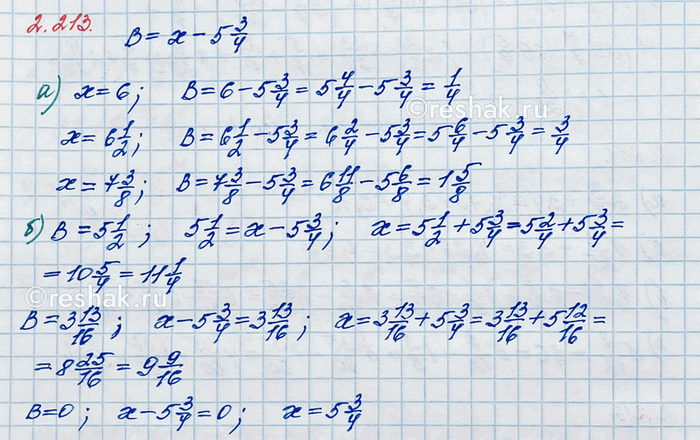 2.213.
B = x - 5 3/4
а) x = 6; B = 6 - 5 3/4 = 5 4/4 - 5 3/4 = 1/4
x = 6 1/2; B = 6 1/2 - 5 3/4 = 6 2/4 - 5 3/4 = 5 6/4 - 5 3/4 = 3/4
x = 7 3/8; B = 7 3/8 - 5 3/4 = 6 11/8 - 5 6/8 = 1 5/8
б) B = 5 1/2; 5 1/2 = x - 5 3/4; x = 5 1/2 + 5 3/4 = 5 2/4 + 5 3/4 =
= 10 5/4 = 11 1/4
B = 3 13/16; x - 5 3/4 = 3 13/16; x = 3 13/16 + 5 3/4 = 3 13/16 + 5 12/16 =
= 8 25/16 = 9 9/16
B = 0; x - 5 3/4 = 0; x = 5 3/4
©reshak.ru
©reshak.ru